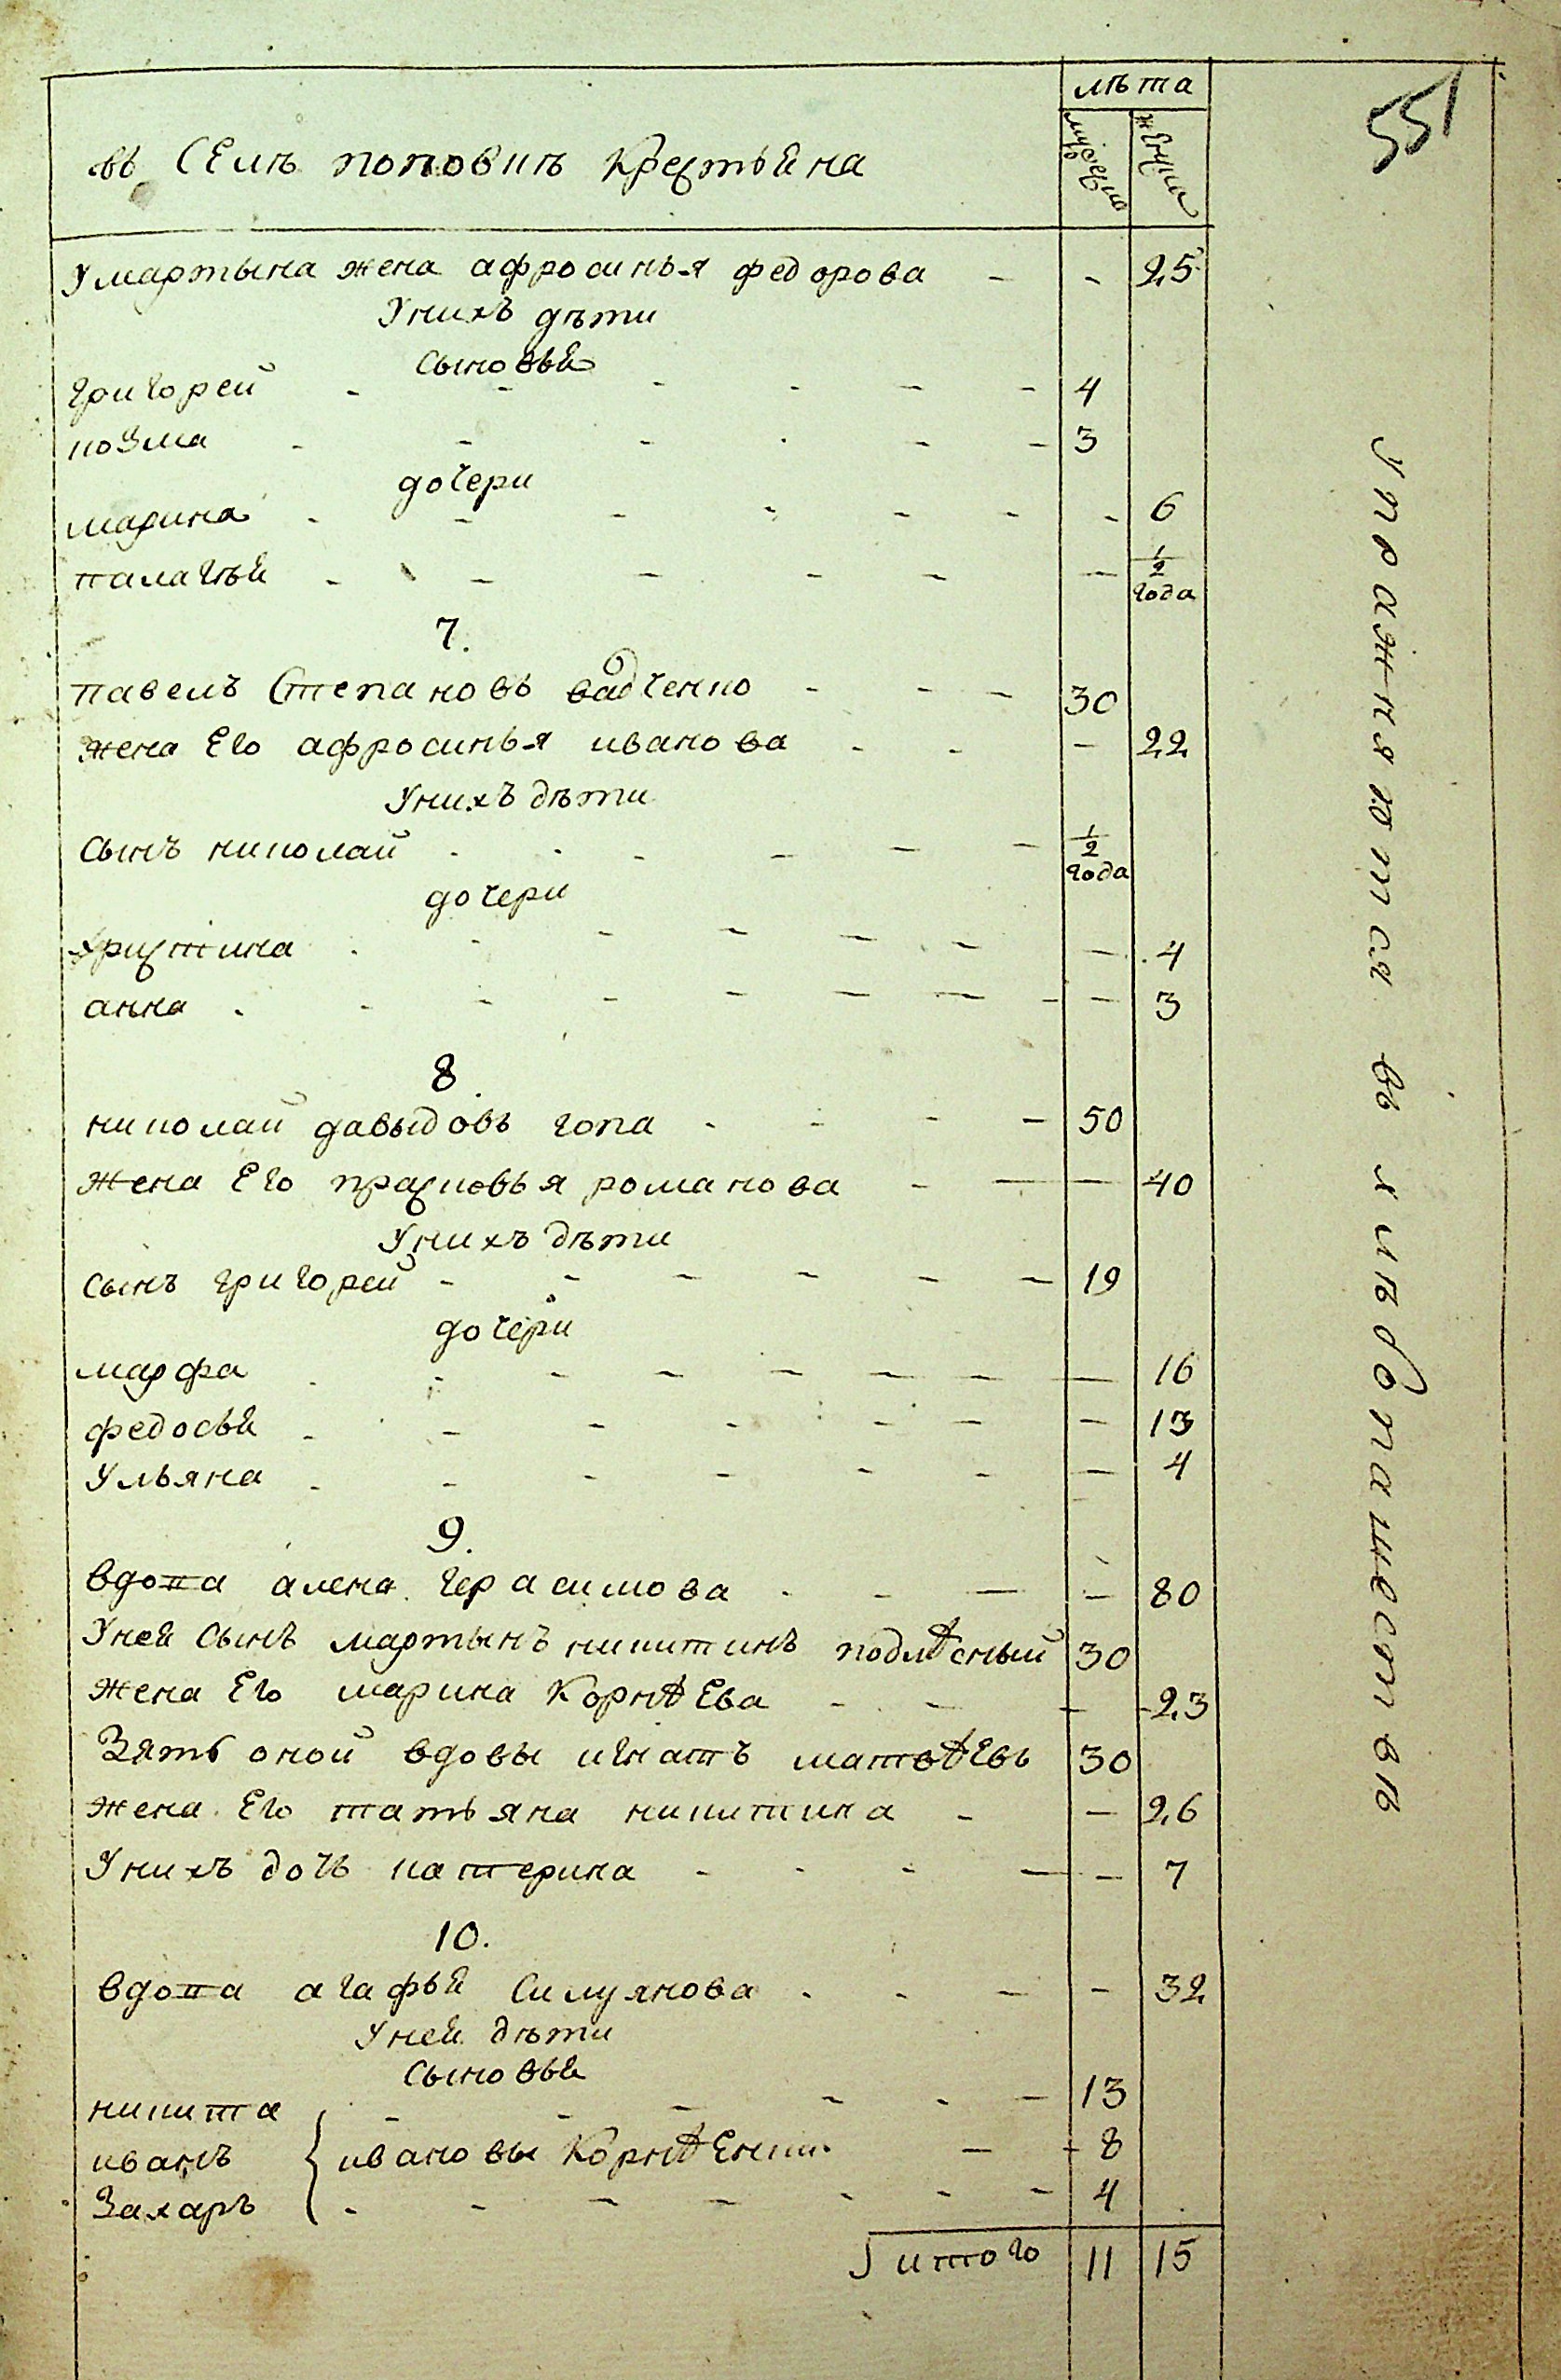 551
лѣта
въ Селѣ поповкѣ Крестьяна
мужеска
женска
У мартына жена афросинья федорова - - 25
У нихъ дѣти
Сыновья
григорей - 4
козма - 3
дочери
марина - - 6
палагѣя - - 1/2 года
7.
павелъ Степановъ вадченко - 30
жена Его афросинья иванова - - 22
У нихъ дѣти
Сынъ николай - 1/2 года
дочери
христина - - 4
анна - - 3
8.
николай давыдовъ гопа - 50
жена Его прасковья романова - - 40
У нихъ дѣти
Сынъ григорей - 19
дочери
марфа - - 16
федосья - - 13
Ульяна - - 4
9.
вдова алена герасимова - - 80
У ней Сынъ мартынъ никитинъ подлѣсный 30
жена Его марина Корнѣева - - 23
Зять оной вдовы игнатъ матвѣевъ 30
жена Его татьяна никитина - - 26
У нихъ дочь катерина - - 7
10.
вдова агафья Силуянова - - 32
У ней дѣти
Сыновья
никита - 13
иванъ } ивановы Корнѣенки - 8
Захаръ - 4
итого 11 15
Упражняются въ хлѣбопашествѣ